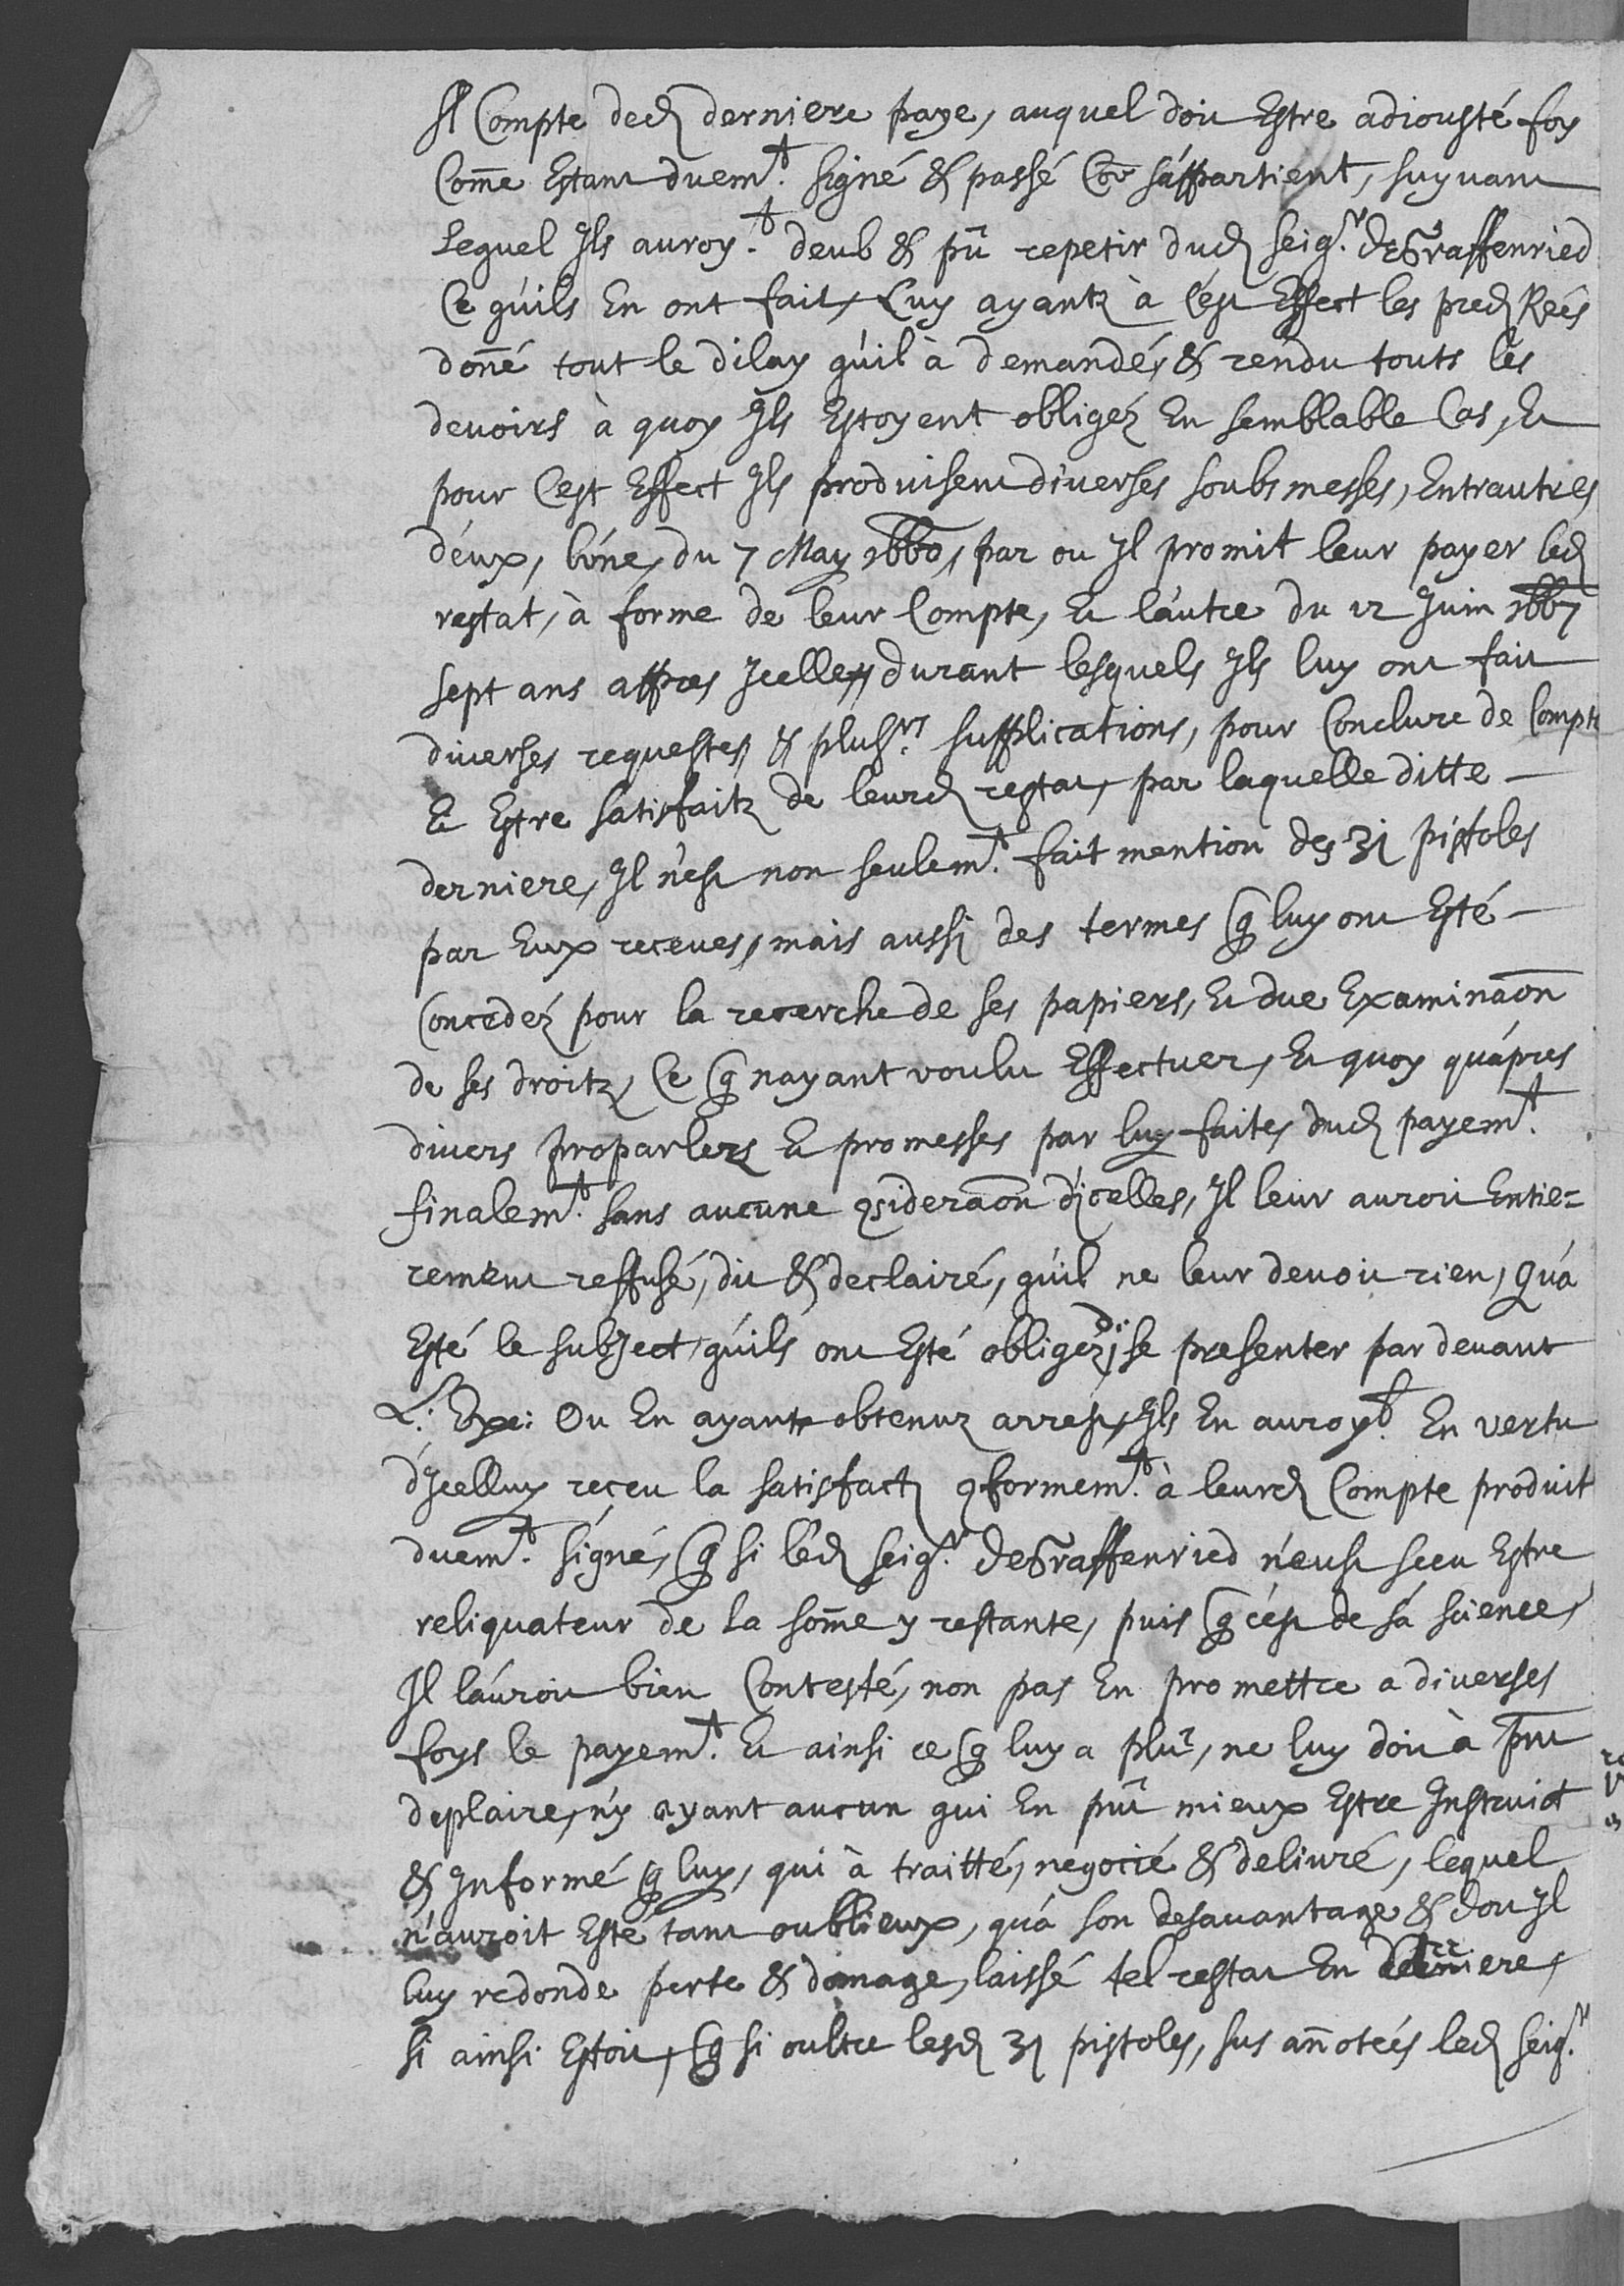 Il Compte ded derniere paye, auquel doit Estre adiousté foy
Com̄e Estant duem.t signé & passé Coē s'appartient, suyvant
Lequel Ils auroy.t deub & pû repetir dud seig.r deGraffenried
Ce qu'ils En ont fait, Luy ayantz à c'est Effect les pred Rées
don̄é tout le dilay qu'il à demandé, & rendu touts les
devoirs à quoy Ils Estoyent obligéz En semblable Cas, Et
pour C'est Effect Ils produisent diverses soubsmesses, Entrautres
d'eux, l'úne, du 7 May 1660, par ou Il promit leur payer led
restat, à forme de leur Compte, Et láutre du 12 Juin 1667
sept ans appres Icelle, durant lesquels Ils luy ont fait
diverses requestes, & plus.rs supplications, pour Conclure de Compte
Et Estre satisfaitz de leurd restat, par laquelle ditte
derniere, Il n'est non seulem.t fait mention des 31 pistoles
par Eux receues, mais aussi des termes q luy ont Esté
Concedéz pour la recerche de ses papiers, Et due Examinaōn
de ses droitz, Ce q nayant voulu Effectuer, Et quoy qu'ápres
divers proparlers Et promesses par luy faites dud payem.t
finalem.t sans aucune qsideraōn d'icelles, Il leur auroit Entie=
rement reffusé, dit & declairé, qu'il ne leur devoit rien, Qu'a
Esté le subject, qu'ils ont Esté obligéz de se presenter par devant
L: Exe: Ou En ayantz obtenuz arrest, Ils En auroy.t En vertu
d'Icelluy receu la satisfact qformem.t à leurd Compte produit
duem.t signé, q si léd seig.r deGraffenried n'eust sceu Estre
reliquateur de la som̄e y restante, puis q cést de sá science,
Il láuroit bien Contesté, non pas En promettre a diverses
foys le payem.t Et ainsi ce q luy a plû, ne luy doit à pn̄t
deplaire, n'y ayant aucun qui En pût mieux Estre Instruict
& Informé q luy, qui à traitté, negocié & delivré, lequel
n'auroit Esté tant oublieux, qu'á son desavantage & dou Il
luy redonde perte & domage, laissé tel restat En derriere,
si ainsi Estoit, q si oultre lesd 31 pistoles, sus an̄otées led seig.r